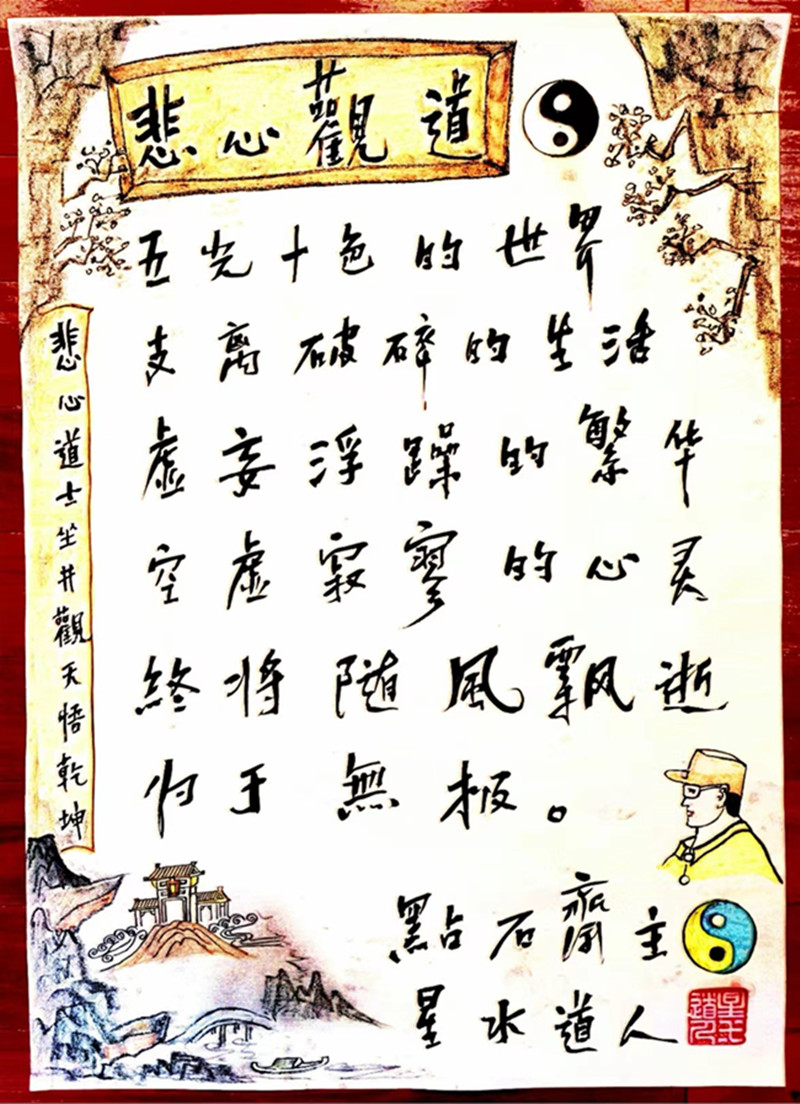 悲心觀道
五光十色的世界
支离破碎的生活
虚妄浮躁的繁华
空虚寂寥的心灵
終将随風飘逝
归于無极。
悲心道士坐井觀天悟乾坤
點石齋主
星水道人
星水道人